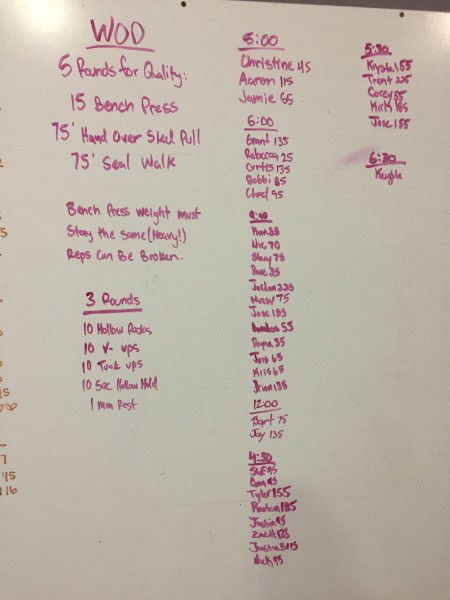 WOD
5 Rounds for Quality:
15 Bench Press
75' Hand Over Sled Pull
75' Seal Walk
Bench Press weight must
Stay the same (Heavy!)
Reps Can Be Broken.
3 Rounds
10 Hollow Rocks
10 V-ups
10 Tuck ups
10 Sec. Hollow Hold
1 min Rest
5:00
Christine 45
Aaron 115
Jamie 65
6:00
Grant 135
Rebecca 25
Curtis 135
Bobbi 85
Chad 95
9:00
Nic 70
75
Jose
55
Jess 65
Kris 65
12:00
Bart 75
Jay 135
4:30
Ben 95
Tyler 155
185
Justin 95
Zach 135
Justin B 115
Nick 95
5:30
Krystal 55
Trent 225
Corey 55
Kirk 185
Jose 155
6:30
Kayla
7
45
16